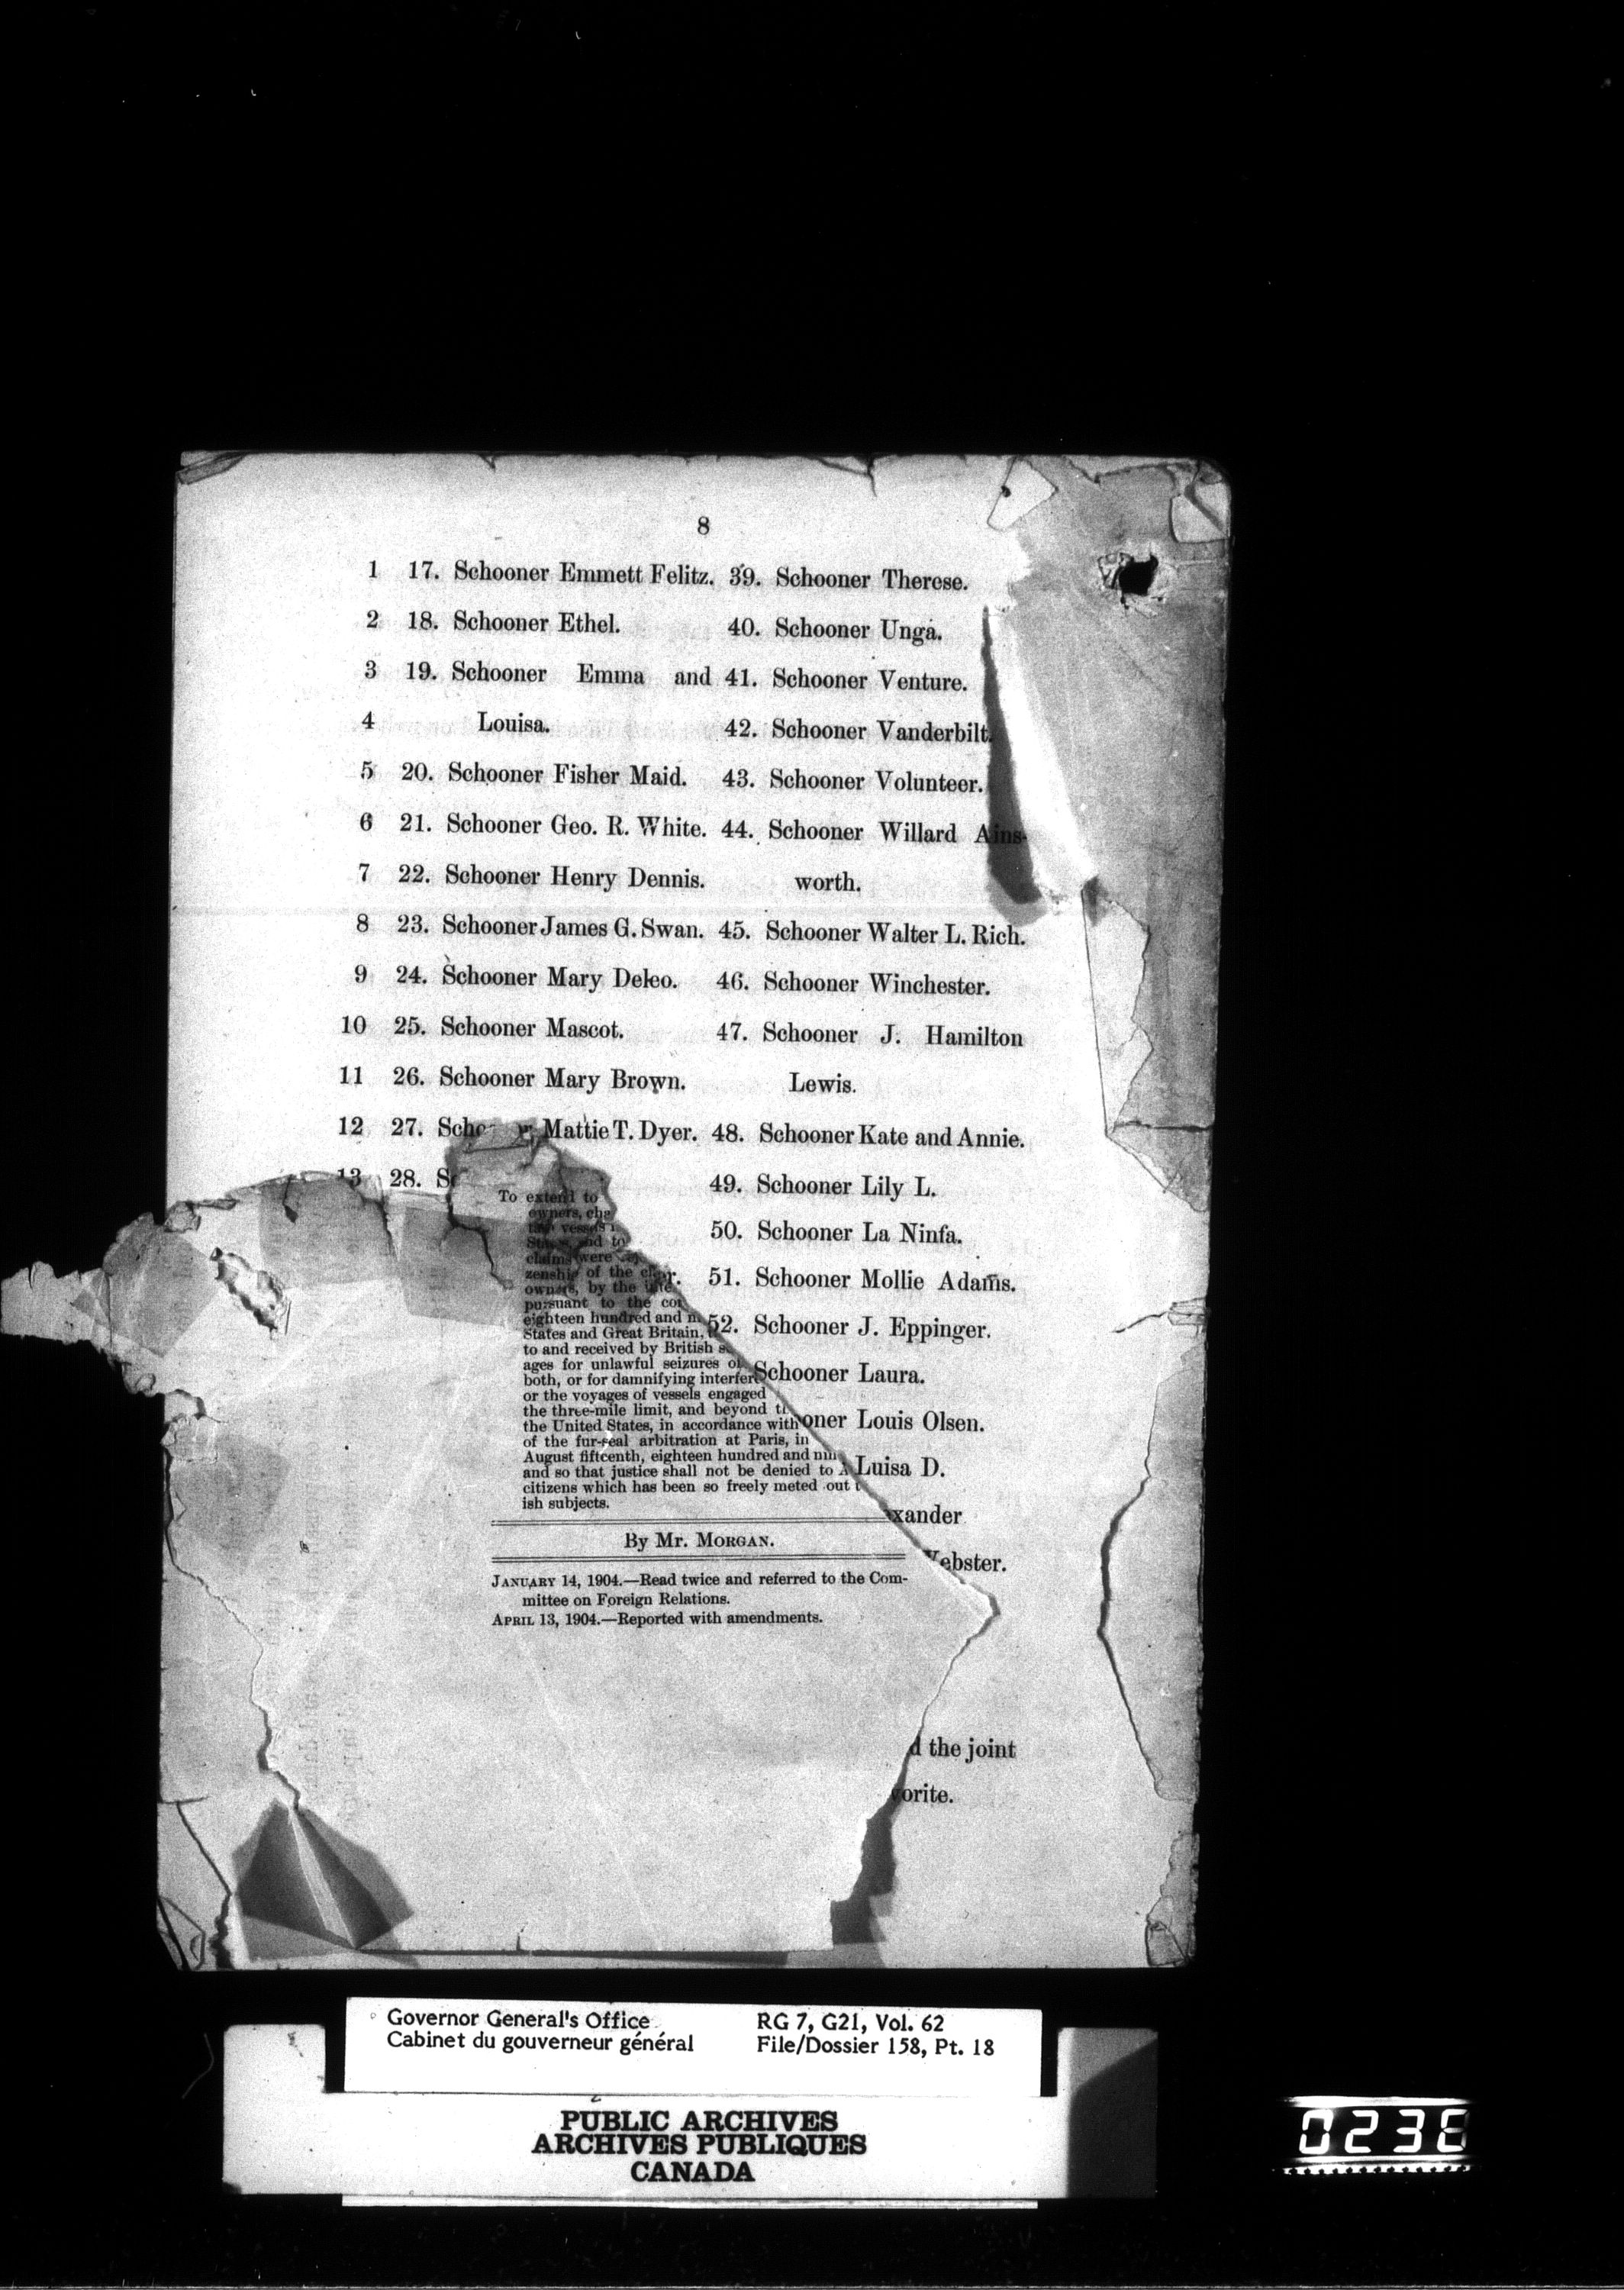 8
1 17. Schooner Emmett Felitz. 39. Schooner Therese.
2 18. Schooner Ethel. 40. Schooner Unga.
3 19. Schooner Emma and 41. Schooner Venture.
4 Louisa. 42. Schooner Vanderbilt.
5 20. Schooner Fisher Maid. 43. Schooner Volunteer.
6 21. Schooner Geo. R. White. 44. Schooner Willard Ains-
7 22. Schooner Henry Dennis. worth.
8 23. Schooner James G. Swan. 45. Schooner Walter L. Rich.
9 24. Schooner Mary Deleo. 46. Schooner Winchester.
10 25. Schooner Mascot. 47. Schooner J. Hamilton
11 26. Schooner Mary Brown. Lewis.
12 27. Scho r Mattie T. Dyer. 48. Schooner Kate and Annie.
13 28. S 49. Schooner Lily L.
50. Schooner La Ninfa.
r. 51. Schooner Mollie Adams.
52. Schooner J. Eppinger.
Schooner Laura.
oner Louis Olsen.
Luisa D.
xander
Webster.
d the joint
vorite.
To extend to
owners, cha
vessels
States and to
claims were
zenship of the
owners, by the
pursuant to the con
eighteen hundred and n
States and Great Britain,
to and received by British s
ages for unlawful seizures of
both, or for damnifying interfer
or the voyages of vessels engaged
the three-mile limit, and beyond t
the United States, in accordance with
of the fur-seal arbitration at Paris, in
August fifteenth, eighteen hundred and nin
and so that justice shall not be denied to A
citizens which has been so freely meted out t
ish subjects.
By Mr. MORGAN.
JANUARY 14, 1904.—Read twice and referred to the Com-
mittee on Foreign Relations.
APRIL 13, 1904.—Reported with amendments.
Governor General's Office RG 7, G21, Vol. 62
Cabinet du gouverneur général File/Dossier 158, Pt. 18
PUBLIC ARCHIVES
ARCHIVES PUBLIQUES
CANADA